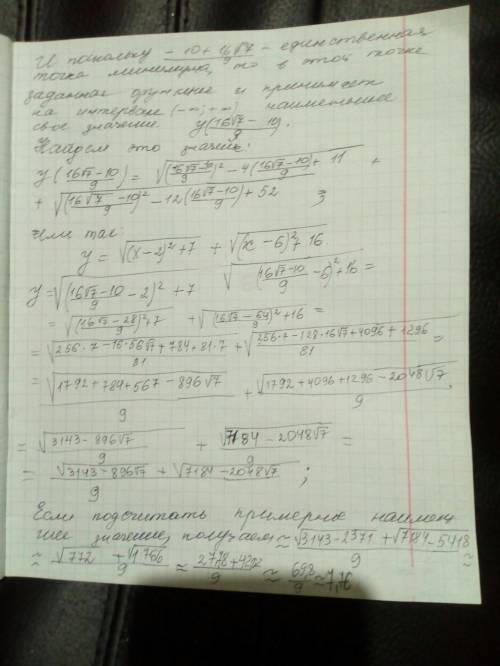 И поскольку (-10+16√7)/9 - единственная
точка минимума, то в этой точке
заданная функция и принимает
на интервале (-∞; +∞) наименьшее
свое значение y((16√7 - 10)/9).
Найдем это значение:
y((16√7-10)/9) = √(((16√7-10)/9)² - 4((16√7-10)/9) + 11) +
+ √(((16√7-10)/9)² - 12((16√7-10)/9) + 52) ;
Или так:
y = √((x-2)²+7) + √((x-6)²+16)
y = √(((16√7-10)/9 - 2)² + 7) √(((16√7-10)/9 - 6)²+16) =
= √(((16√7-28)/9)²+7) + √(((16√7-64)/9)²+16) =
= √((256·7-16·56√7+784+81·7)/81) + √((256·7-128·16√7+4096+1296)/81) =
= √(1792+784+567-896√7)/9 + √(1792+4096+1296-2048√7)/9
= √(3143-896√7)/9 + √(7184-2048√7)/9 =
= (√(3143-896√7) + √(7184-2048√7))/9 ;
Если подсчитать примерное наимень
шее значение, получаем ≈ (√(3143-2371) + √(7184-5418))/9 ≈
≈ (√772 + √1766)/9 ≈ /9 ≈ 69,8/9 ≈ 7,76